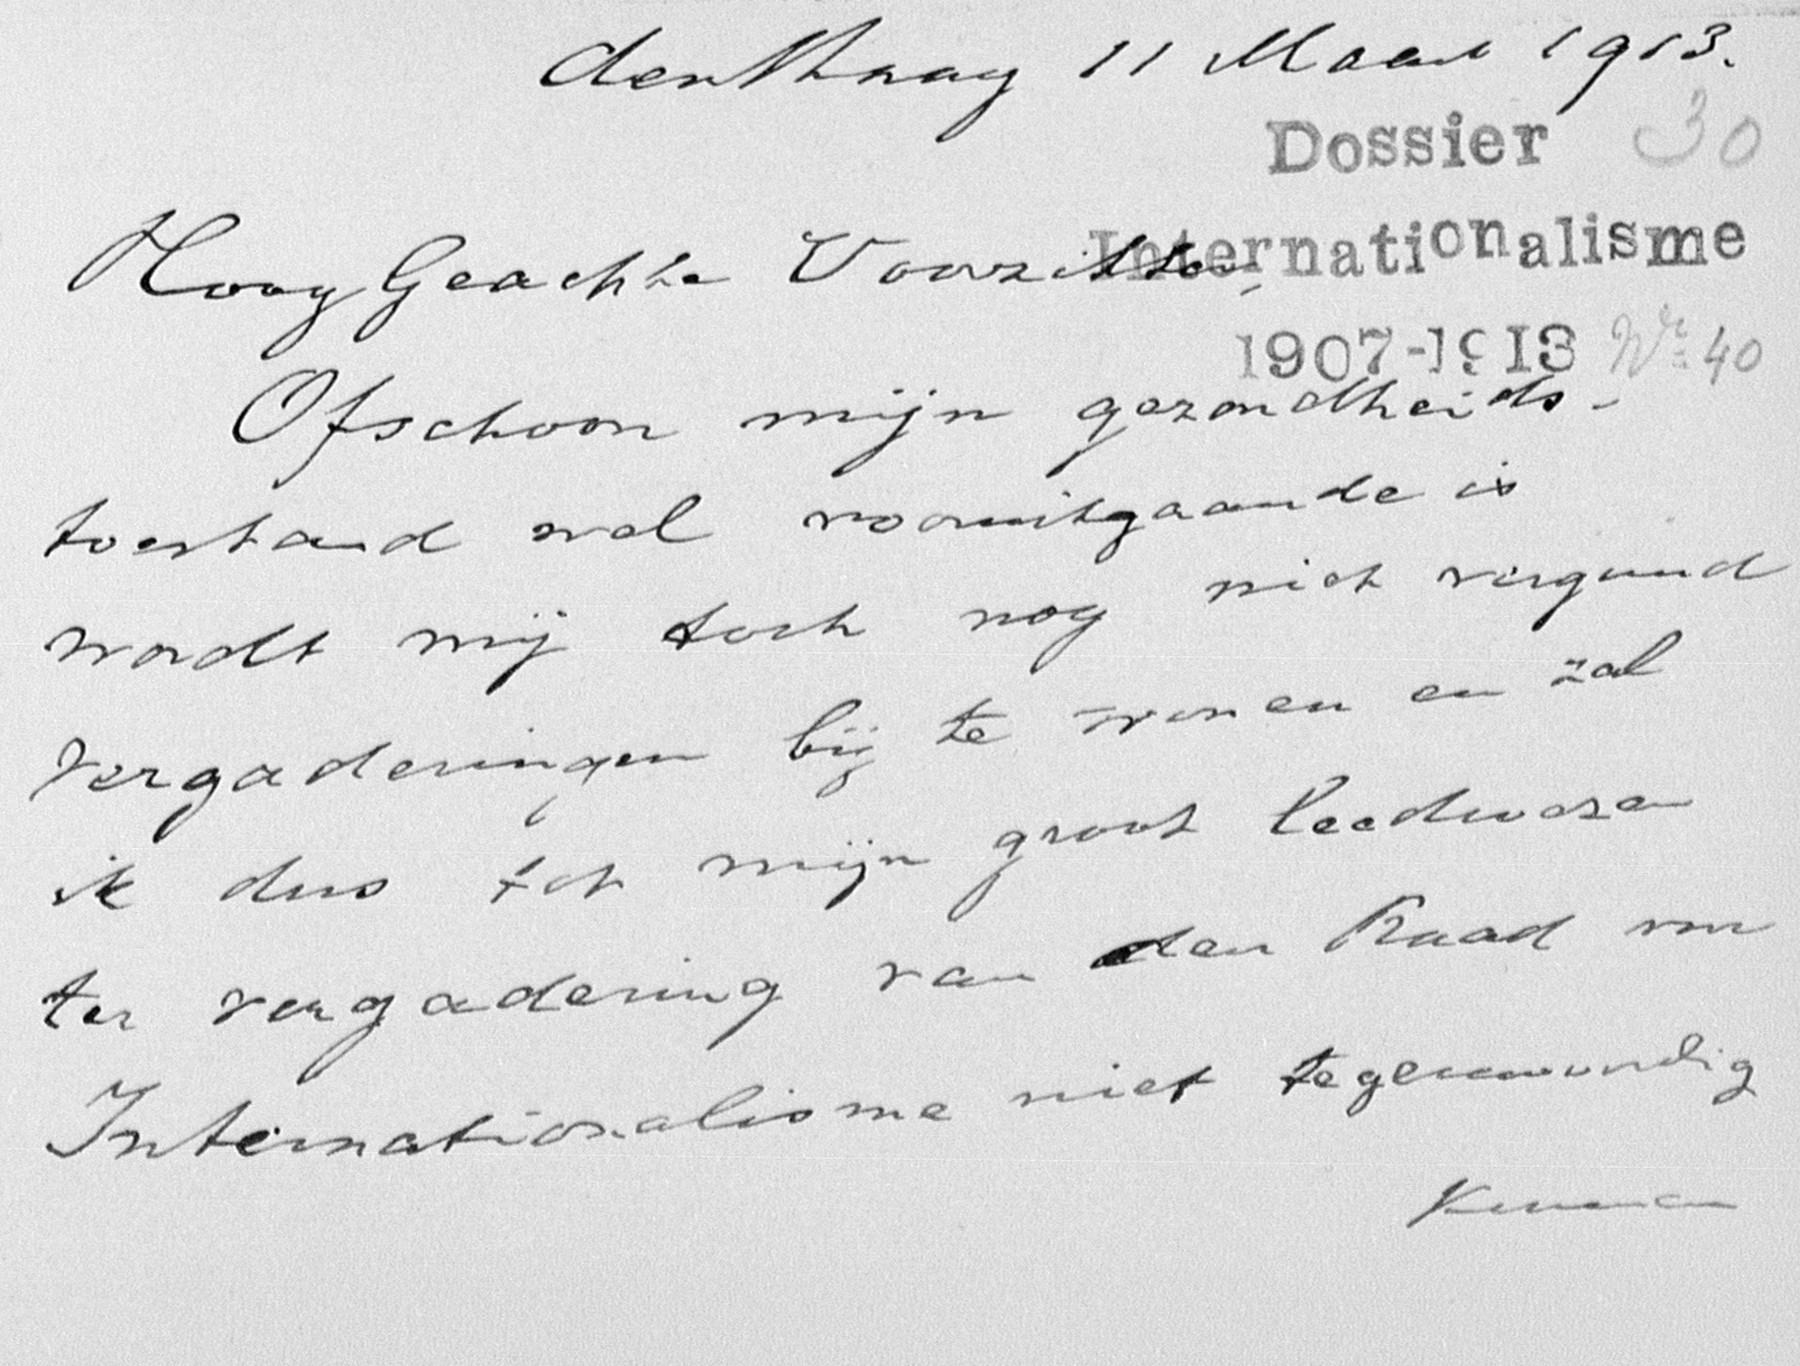 den Haag 11 Maart 1913.
Dossier 30
Hoog Geachte Voorzitter,
Internationalisme
1907-1913 Nr. 40
Ofschoon mijn gezondheids-
toestand wel vooruitgaande is
wordt mij toch nog niet vergund
vergaderingen bij te wonen en zal
ik dus tot mijn groot leedwezen
ter vergadering van den Raad van
Internationalisme niet tegenwoordig
kunnen